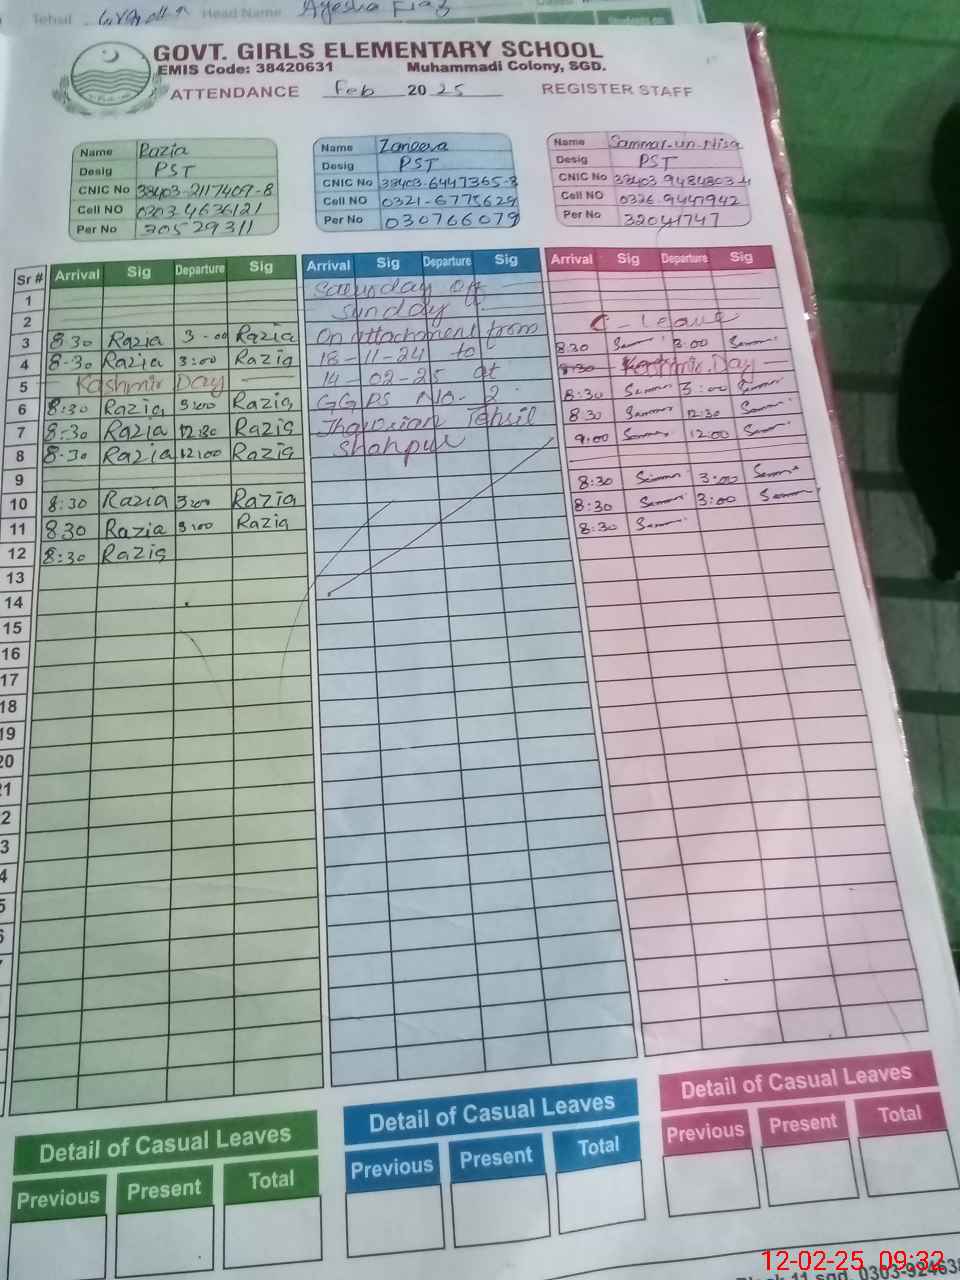 Tehsil Head Name Ayesha Fiaz
GOVT. GIRLS ELEMENTARY SCHOOL
EMIS Code: 38420631 Muhammadi Colony, SGD.
ATTENDANCE Feb 2025 REGISTER STAFF
Name Razia
Desig PST
CNIC No 38403-2117407-8
Cell NO 0303-4636121
Per No 30529311
Name Zaneera
Desig PST
CNIC No 38403-6447365-8
Cell NO 0321-6775629
Per No 030766079
Name Sammar-un-Nisa
Desig PST
CNIC No 38403-9484803-4
Cell NO 0326-9447942
Per No 32041747
Sr # Arrival Sig Departure Sig
1
2
3 8:30 Razia 3-00 Razia
4 8-30 Razia 3:00 Razia
5 Kashmir Day
6 8:30 Razia 3:00 Razia
7 8:30 Razia 12:30 Razia
8 8-30 Razia 12:00 Razia
9
10 8:30 Razia 3:00 Razia
11 8:30 Razia 3:00 Razia
12 8:30 Razia
13
14
15
16
17
18
19
20
21
2
3
4
5
6
Arrival Sig Departure Sig
Saturday off
Sunday
On attachment from
18-11-24 to
14-02-25 at
GGPS No-2
Jhawrian Tehsil
Shahpur
Arrival Sig Departure Sig
C-Leave
8:30 3:00
8:30 Kashmir Day
8:30 3:00
8:30 12:30
9:00 12:00
8:30 3:00
8:30 3:00
8:30
Detail of Casual Leaves
Previous Present Total
Detail of Casual Leaves
Previous Present Total
Detail of Casual Leaves
Previous Present Total
12-02-25 09:32